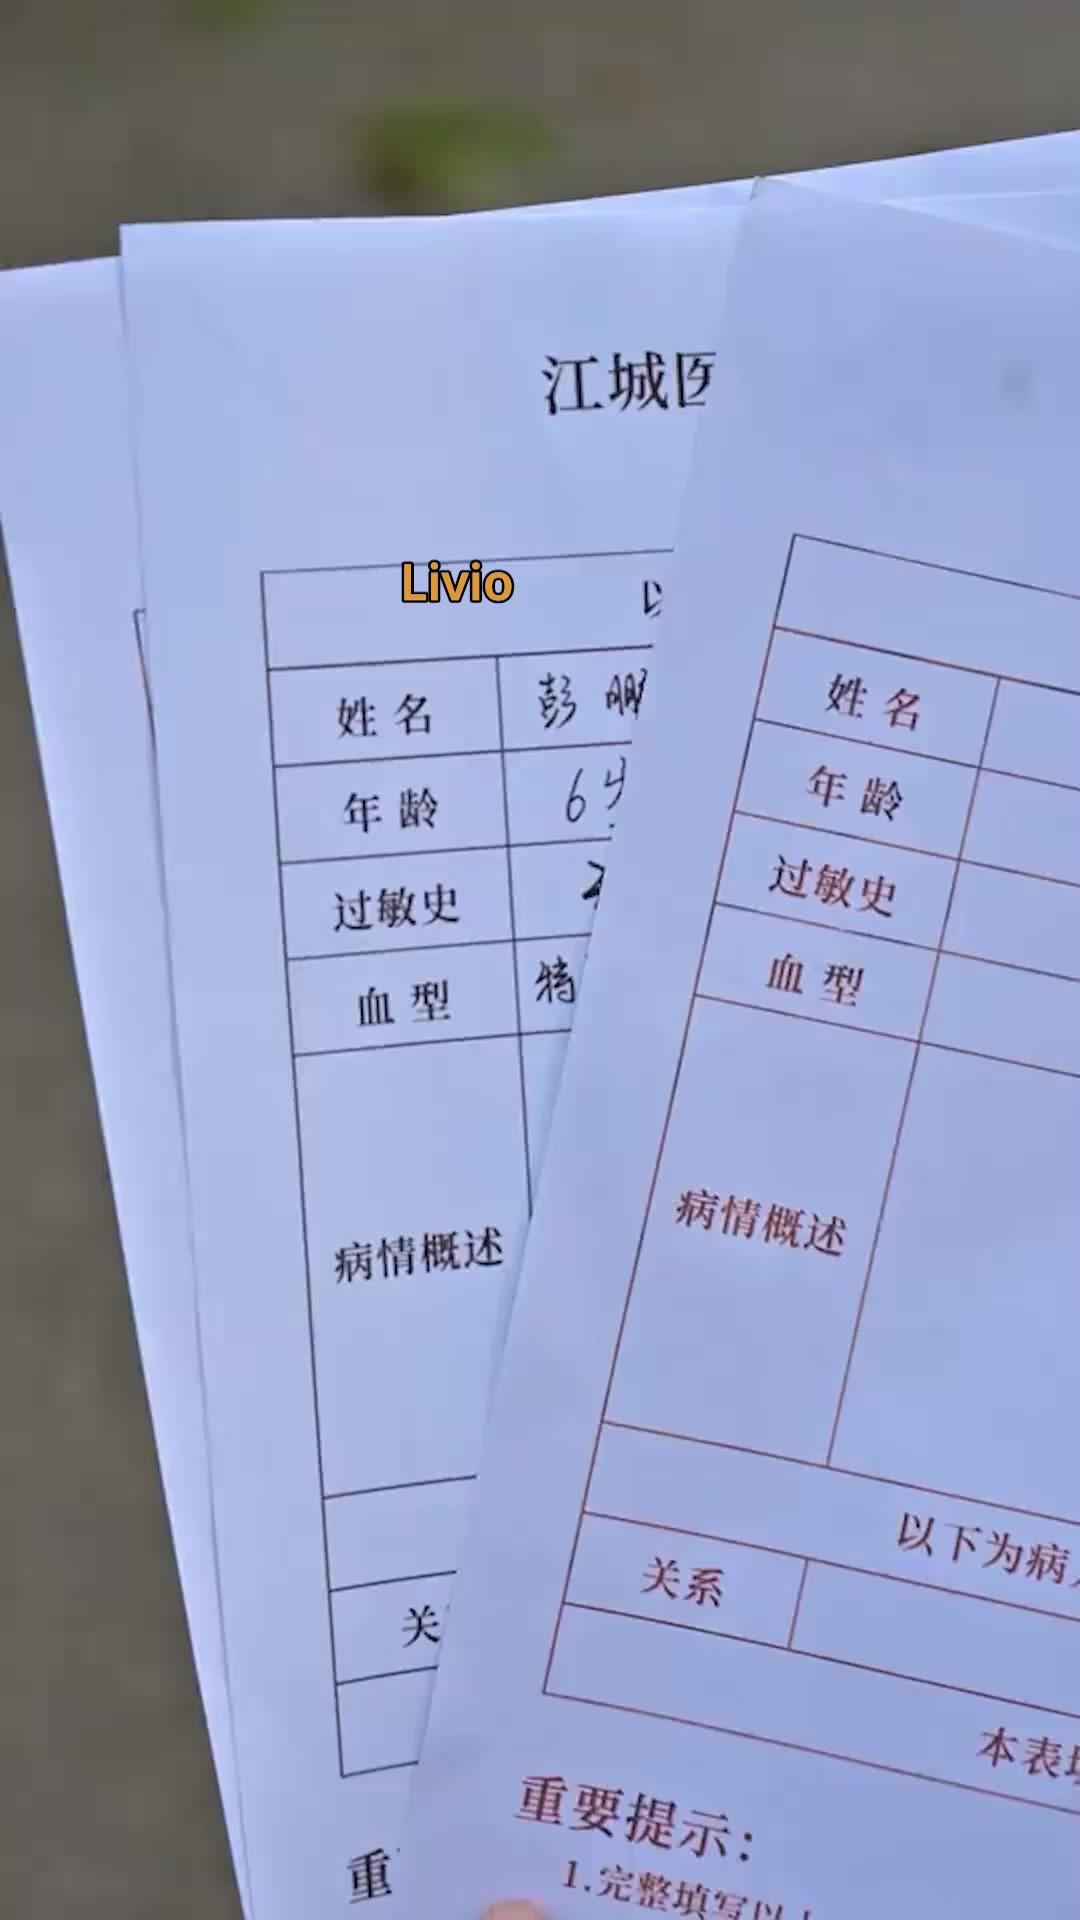 江城医
Livio
以
姓名 彭鹏
年龄 65
过敏史
血型 特
病情概述
关
重
姓名
年龄
过敏史
血型
病情概述
以下为病人
关系
本表填
重要提示：
1.完整填写以上